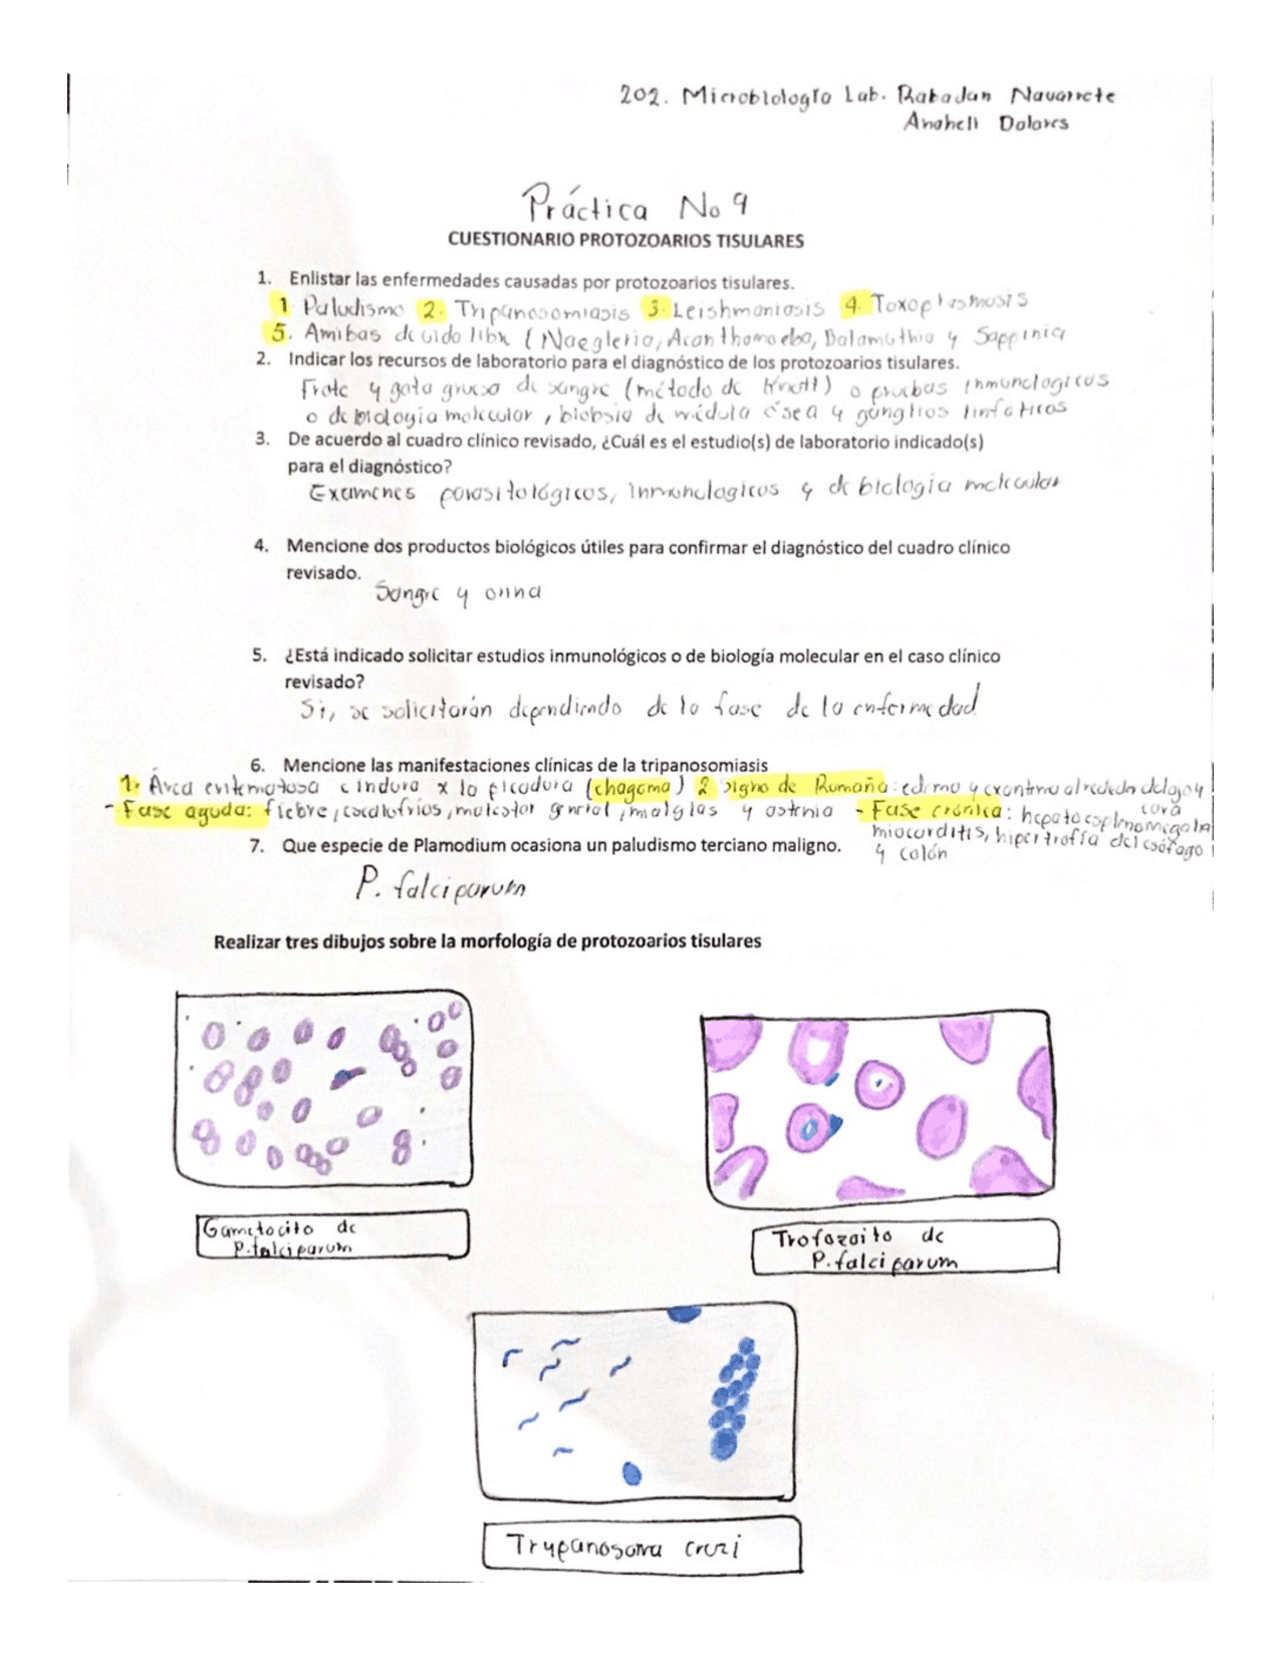 202. Microbiología Lab. Rabadan Navarrete
Anaheli Dolores
Práctica No 9
CUESTIONARIO PROTOZOARIOS TISULARES
1. Enlistar las enfermedades causadas por protozoarios tisulares.
1 Paludismo 2. Tripanosomiasis 3. Leishmaniosis 4. Toxoplasmosis
5. Amibas de vida libre (Naegleria, Acanthamoeba, Balamuthia y Sappinia
2. Indicar los recursos de laboratorio para el diagnóstico de los protozoarios tisulares.
Frote y gota gruesa de sangre (método de Knott) o pruebas inmunologicos
o de biologia molecular, biobsia de médula ósea y ganglios linfaticos
3. De acuerdo al cuadro clínico revisado, ¿Cuál es el estudio(s) de laboratorio indicado(s)
para el diagnóstico?
Examenes parasitológicos, inmunologicos y de biologia molecular
4. Mencione dos productos biológicos útiles para confirmar el diagnóstico del cuadro clínico
revisado.
Sangre y orina
5. ¿Está indicado solicitar estudios inmunológicos o de biología molecular en el caso clínico
revisado?
Si, se solicitarán dependiendo de la fase de la enfermedad
6. Mencione las manifestaciones clínicas de la tripanosomiasis
1. Área eritematosa e indura x la picadura (chagoma) 2 signo de Romaña: edema y exantema alrededor del ojo y cara
- Fase aguda: fiebre, escalofrios, malestar gnral, mialgias y astenia - Fase crónica: hepatoesplenomegalia
miocarditis, hipertrofia del esófago
y colón
7. Que especie de Plamodium ocasiona un paludismo terciano maligno.
P. falciparum
Realizar tres dibujos sobre la morfología de protozoarios tisulares
Gametocito de
P. falciparum
Trofozoito de
P. falciparum
Trypanosoma cruzi